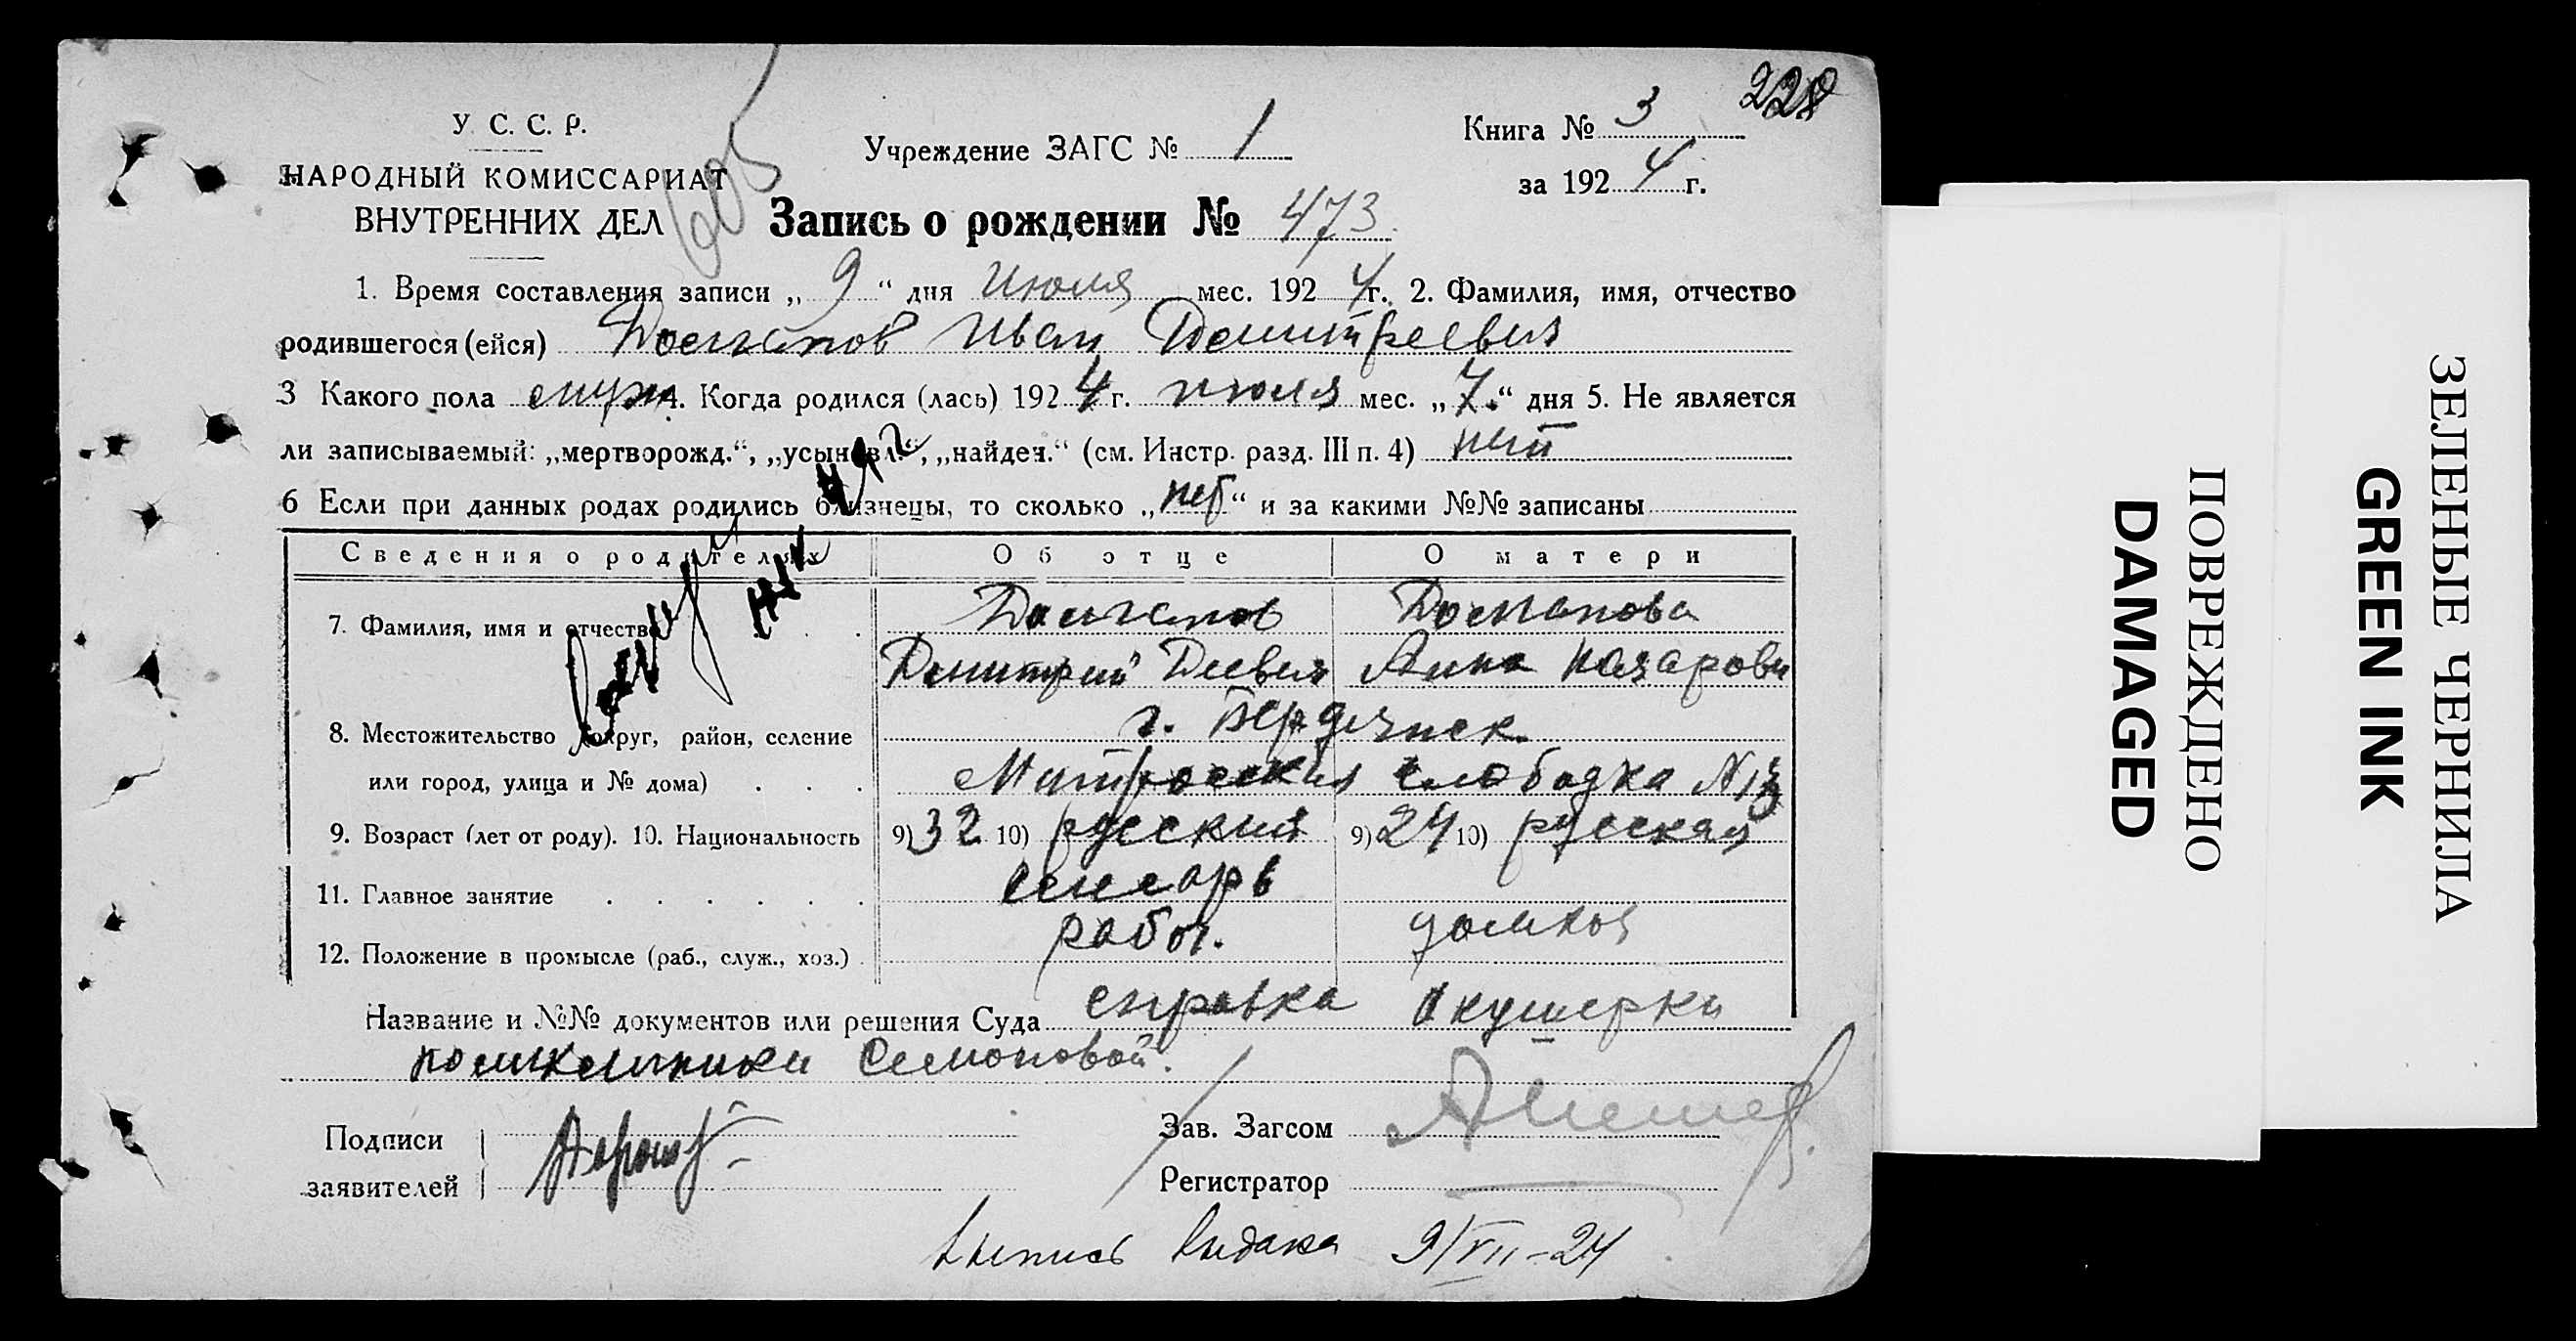 228
У. С. С. Р.
НАРОДНЫЙ КОМИССАРИАТ
ВНУТРЕННИХ ДЕЛ
Учреждение ЗАГС № 1
Книга № 3
за 1924 г.
Запись о рождении № 473
1. Время составления записи „ 9 “ дня Июля мес. 1924 г. 2. Фамилия, имя, отчество
родившегося (ейся) Иван Дмитреевич
3 Какого пола муж 4. Когда родился (лась) 1924 г. июля мес. „7“ дня 5. Не является
ли записываемый: „мертворожд.“, „усыновл.“, „найден.“ (см. Инстр. разд. III п. 4) нет
6 Если при данных родах родились близнецы, то сколько „нет“ и за какими №№ записаны
Сведения о родителях Об отце О матери
7. Фамилия, имя и отчество
Дмитрий Анна Назаровн
8. Местожительство (округ, район, селение г. Бердянск
или город, улица и № дома) Матросская слободка N 13
9. Возраст (лет от роду). 10. Национальность 9) 32 10) русский 9) 24 10) русская
11. Главное занятие слесарь
12. Положение в промысле (раб., служ., хоз.) рабоч. домхоз
Название и №№ документов или решения Суда справка Акушерки
поликлиники Семоновой.
Подписи
заявителей
Зав. Загсом
Регистратор
Выпись выдана 9/VII-24
ПОВРЕЖДЕНО
DAMAGED
ЗЕЛЕНЫЕ ЧЕРНИЛА
GREEN INK